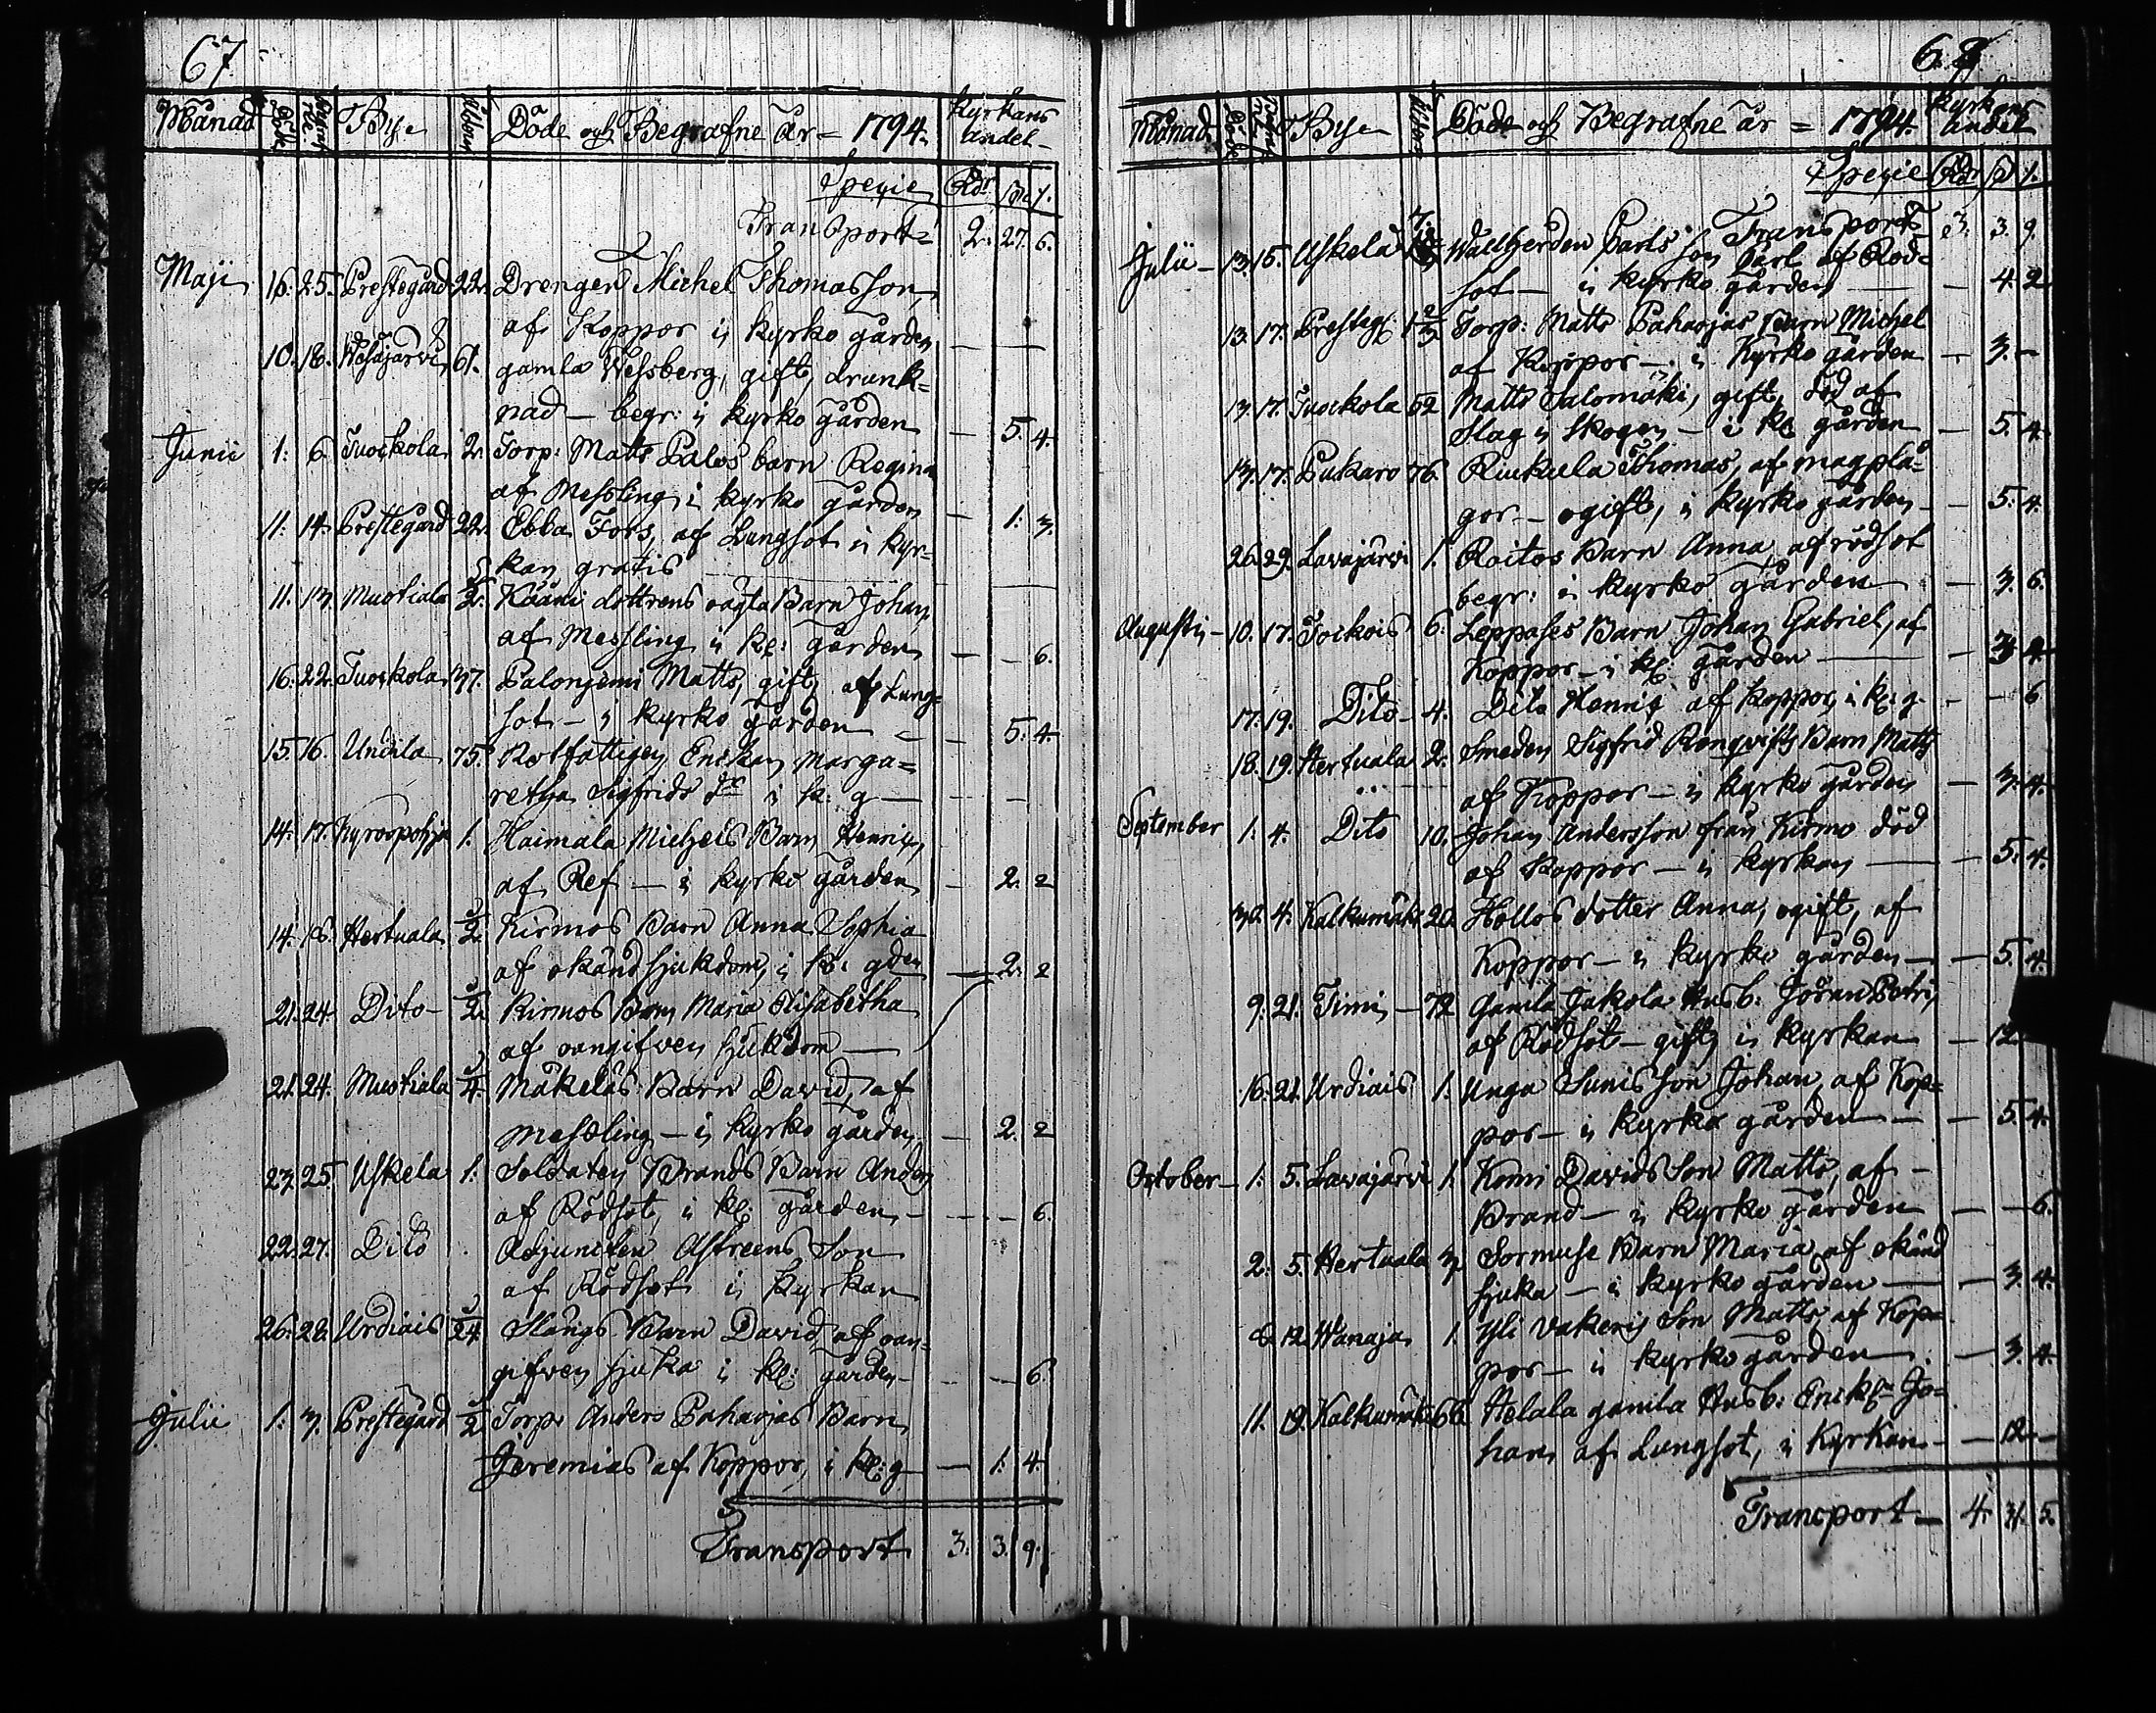 67
Månad Döde Begrafne Bye Ålder Döde och Begrafne År = 1794. Kyrkans andel
Specie Rdr ß 1.
Transport = 2. 27. 6.
Maji 16. 25. Prestegård 22. Drengen Michel Thomasson
af Koppor i kyrko gården — —
10. 18. Wesajärvi 61. gamla Wessberg, gift, drunk=
nad — begr: i kyrko gården — 5. 4.
Junii 1: 6. Tuockola 2. Torp: Matts Palos barn Regina
af Messling i kyrko gården — 1: 3.
11: 14. Prestegård 22. Ebba Fors, af Lungsot i kyr=
kan gratis
11. 13. Mustiala 5/2. Kääni dottrens oägta Barn Johan
af Messling i kl: gården — — 6.
16. 22. Tuockola 37. Palonjemi Matts, gift, af Lung=
sot — i kyrko gården — 5. 4.
15. 16. Undila 75. Rotfattigen Enckan Marga=
retha Sigfrids dr i k: g — — —
14. 17. Kyrööpohja 1. Haimala Michels Barn Henric
af Ref — i kyrko gården — 2. 2
14. 18. Hertuala 2. Kirmos Barn Anna Sophia
af okänd sjukdom, i k: gden — 2. 2
21. 24. Dito — 2. Kirmos Barn Maria Elisabetha
af oangifven sjukdom —
21. 24. Mustiala 4. Mäkeläs Barn David, af
Messling — i kyrko gården — 2. 2
23. 25. Uskela 1. Soldaten Brands Barn Anders
af Rödsot, i kl: gården — — — 6.
22. 27. Dito Adjuncten Astreens Son
af Rödsot i Kyrkan
26. 28. Urdiais 24. Slångs Barn David, af oan=
gifven sjuka i kl: gården — — — 6.
Julii 1: 3. Prestegård 2. Torp: Anders Paharjas Barn
Jeremias af Koppor, i kl: g — 1: 4.
Transport 3. 3. 9.
68
Månad Döde Bye Ålder Döde och Begrafne år = 1794. Kyrkans andel
Specie Rdr ß 1.
Transport 3. 3. 9.
Julii — 13. 15. Uskela 7. Wallherden Carls son Carl af Röd=
sot — i kyrko gården — — 4. 2
13. 17. Presteg: 1 Torp: Matts Paharjas Barn Michel
af Koppor — i Kyrko gården — 3. —
13. 17. Tuockola 52 Matts Salomäki, gift, död af
Slag i skogen — i kl gården — 5. 4.
13. 17. Pukaro 76. Riukula Thomas, af magplå=
gor — ogift, i kyrko gården — — 5. 4.
26. 29. Lavajärvi 1. Roitos Barn Anna, af rödsot
begr: i kyrko gården — 3. 6.
Augusti — 10. 17. Jockois 6. Leppases Barn Johan Gabriel, af
Koppor — i kl: gården — — 3. 4
17. 19. Dito — 4. Dito Henric af koppor, i kl: g — — 6
18. 19. Hertuala 2. Smeden Sigfrid Renqvists Barn Matts
af Koppor — i kyrko gården — 3. 4.
September 1: 4. Dito 10. Johan Andersson från Kirmo död
af Koppor — i kyrkan — — 5. 4.
30. 4. Kalkumäki 20. Hollos dotter Anna, ogift, af
Koppor — i kyrko gården — — 5. 4.
9. 21. Jimi — 72 Gamla Jakola Husb: Jöran Petri
af Rödsot — gift, i kyrkan — 12.
16. 21. Urdiais 1. Unga Sunis son Johan, af Kop=
por — i kyrko gården — — 5. 4.
October — 1. 5. Lavajärvi 1. Komi Davids Son Matts, af —
Brand — i kyrko gården — — 6.
2. 5. Hertuala 3 Sormuse Barn Maria, af okänd
sjuka — i kyrko gården — — 3. 4.
8. 12. Wanaja 1. Yli Vakeri Son Matts, af Kop=
por — i kyrko gården — 3. 4.
11. 19. Kalkumäki 66. Helala gamla Husb: Ericksn Jo=
han af Lungsot, i Kyrkan — — 12. —
Transport — 4. 31. 5.